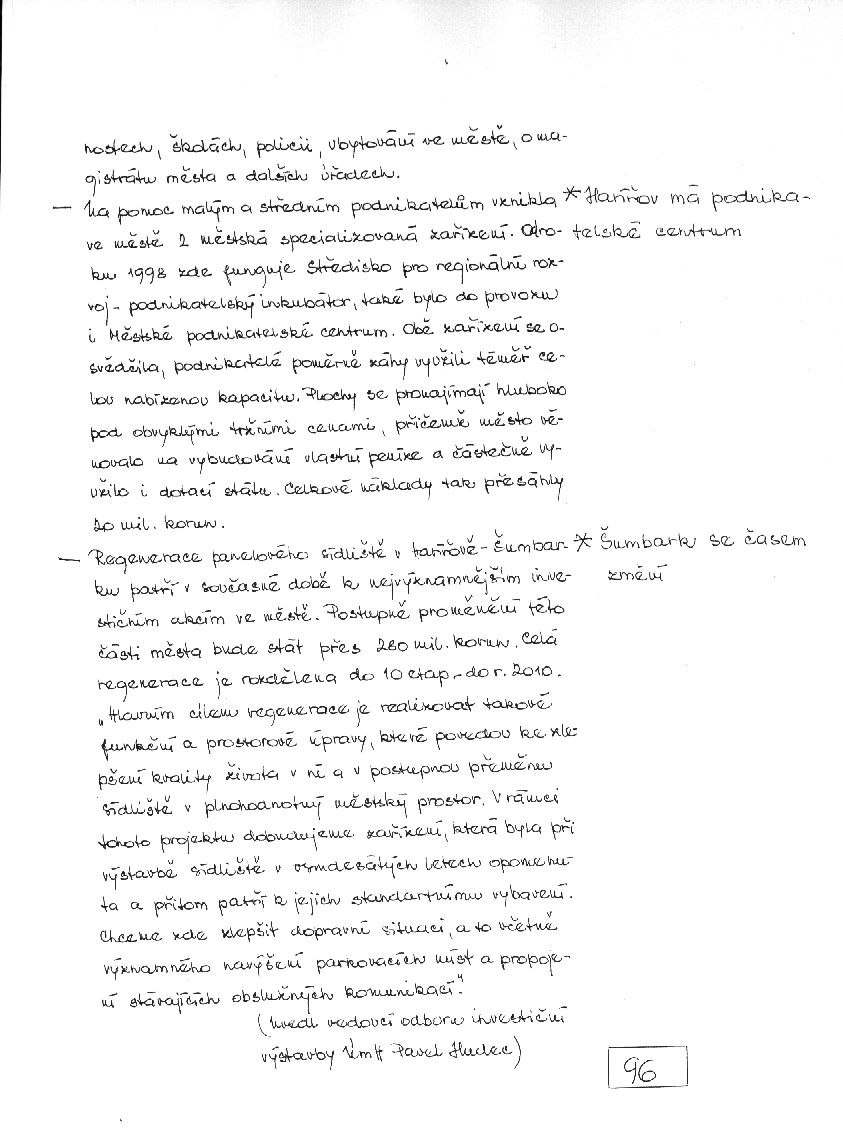 nostech, školách, policii, ubytování ve městě, o ma-
gistrátu města a dalších úřadech.
— Na pomoc malým a středním podnikatelům vznikla * Havířov má podnika-
ve městě 2 městská specializovaná zařízení. Od ro- telské centrum
ku 1998 zde funguje Středisko pro regionální roz-
voj - podnikatelský inkubátor, také bylo do provozu
i Městské podnikatelské centrum. Obě zařízení se o-
svědčila, podnikatelé poměrně záhy využili téměř ce-
lou nabízenou kapacitu. Plochy se pronajímají hluboko
pod obvyklými tržními cenami, přičemž město vě-
novalo na vybudování vlastní peníze a částečně vy-
užilo i dotací státu. Celkové náklady tak přesáhly
20 mil. korun.
— Regenerace panelového sídliště v Havířově - Šumbar- * Šumbark se časem
ku patří v současné době k nejvýznamnějším inve- změní
stičním akcím ve městě. Postupné proměnění této
části města bude stát přes 280 mil. korun. Celá
regenerace je rozdělena do 10 etap - do r. 2010.
„Hlavním cílem regenerace je realizovat takové
funkční a prostorové úpravy, které povedou ke zle-
pšení kvality života v ní a v postupnou přeměnu
sídliště v plnohodnotný městský prostor. V rámci
tohoto projektu dobudujeme zařízení, která byla při
výstavbě sídliště v osmdesátých letech opomenu-
ta a přitom patří k jejich standartnímu vybavení.
Chceme zde zlepšit dopravní situaci, a to včetně
významného navýšení parkovacích míst a propoje-
ní stávajících obslužných komunikací."
(uvedl vedoucí odboru investiční
výstavby ÚmH Pavel Hudec)
96